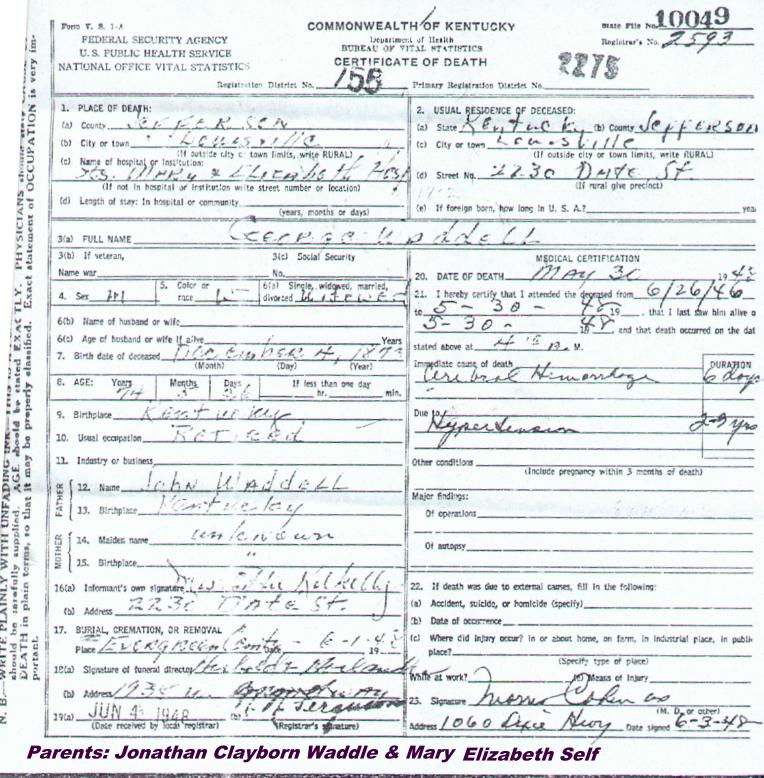 Form V. S. 1-A
FEDERAL SECURITY AGENCY
U. S. PUBLIC HEALTH SERVICE
NATIONAL OFFICE VITAL STATISTICS
COMMONWEALTH OF KENTUCKY
Department of Health
BUREAU OF VITAL STATISTICS
CERTIFICATE OF DEATH
State File No. 10049
Registrar's No. 2593
2275
Registration District No. 155 Primary Registration District No.
1. PLACE OF DEATH:
(a) County JEFFERSON
(b) City or town Louisville
(If outside city or town limits, write RURAL)
(c) Name of hospital or Institution:
Sts. Mary & Elizabeth Hosp
(If not in hospital or institution write street number or location)
(d) Length of stay: In hospital or community
(years, months or days)
2. USUAL RESIDENCE OF DECEASED:
(a) State Kentucky (b) County JEFFERSON
(c) City or town Louisville
(If outside city or town limits, write RURAL)
(d) Street No. 2230 Date St.
(If rural give precinct)
(e) If foreign born, how long in U. S. A.? yea
3(a) FULL NAME GEORGE WADDELL
3(b) If veteran, 3(c) Social Security
Name war No.
4. Sex M 5. Color or race W 6(a) Single, widowed, married, divorced WIDOWED
6(b) Name of husband or wife
6(c) Age of husband or wife if alive Years
7. Birth date of deceased December 4, 1873
(Month) (Day) (Year)
8. AGE: Years Months Days If less than one day
74 5 26 hr. min.
9. Birthplace Kentucky
10. Usual occupation Retired
11. Industry or business
FATHER
12. Name John Waddell
13. Birthplace Kentucky
MOTHER
14. Maiden name unknown
15. Birthplace "
16(a) Informant's own signature
(b) Address 2230 Date St.
17. BURIAL, CREMATION, OR REMOVAL
Place Evergreen Date 6-1-48 19
18(a) Signature of funeral director
(b) Address 1935
19(a) JUN 4 1948 (b)
(Date received by local registrar) (Registrar's signature)
MEDICAL CERTIFICATION
20. DATE OF DEATH MAY 30 1948
21. I hereby certify that I attended the deceased from 6/26/46
to 5-30- 1948, that I last saw him alive o
5-30- 1948 and that death occurred on the dat
stated above at 4 15 M.
Immediate cause of death DURATION
Cerebral Hemorrhage 6 days
Due to
Hypertension 2-3 yrs
Other conditions
(Include pregnancy within 3 months of death)
Major findings:
Of operations
Of autopsy
22. If death was due to external causes, fill in the following:
(a) Accident, suicide, or homicide (specify)
(b) Date of occurrence
(c) Where did injury occur? in or about home, on farm, in industrial place, in public
place?
(Specify type of place)
While at work? (e) Means of Injury
23. Signature Morris Cohen MD
(M. D. or other)
Address 1060 Dixie Hwy Date signed 6-3-48
N. B.—WRITE PLAINLY WITH UNFADING INK—THIS IS A
should be carefully supplied. AGE should be stated EXACTLY. PHYSICIANS should
DEATH in plain terms, so that it may be properly classified. Exact statement of OCCUPATION is very im-
portant.
Parents: Jonathan Clayborn Waddle & Mary Elizabeth Self